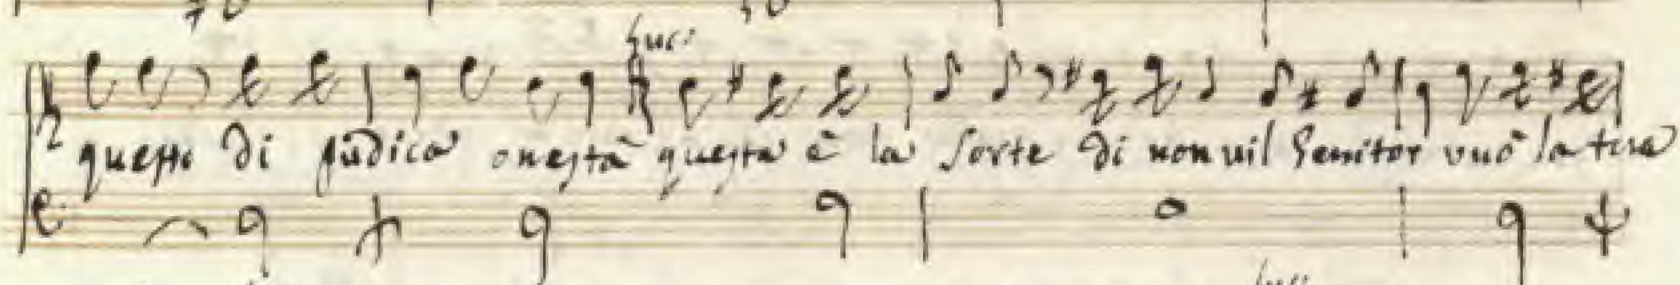 Luc:
questi di pudica onestà questa è la sorte di non vil Genitor vuò la tua
Luc: